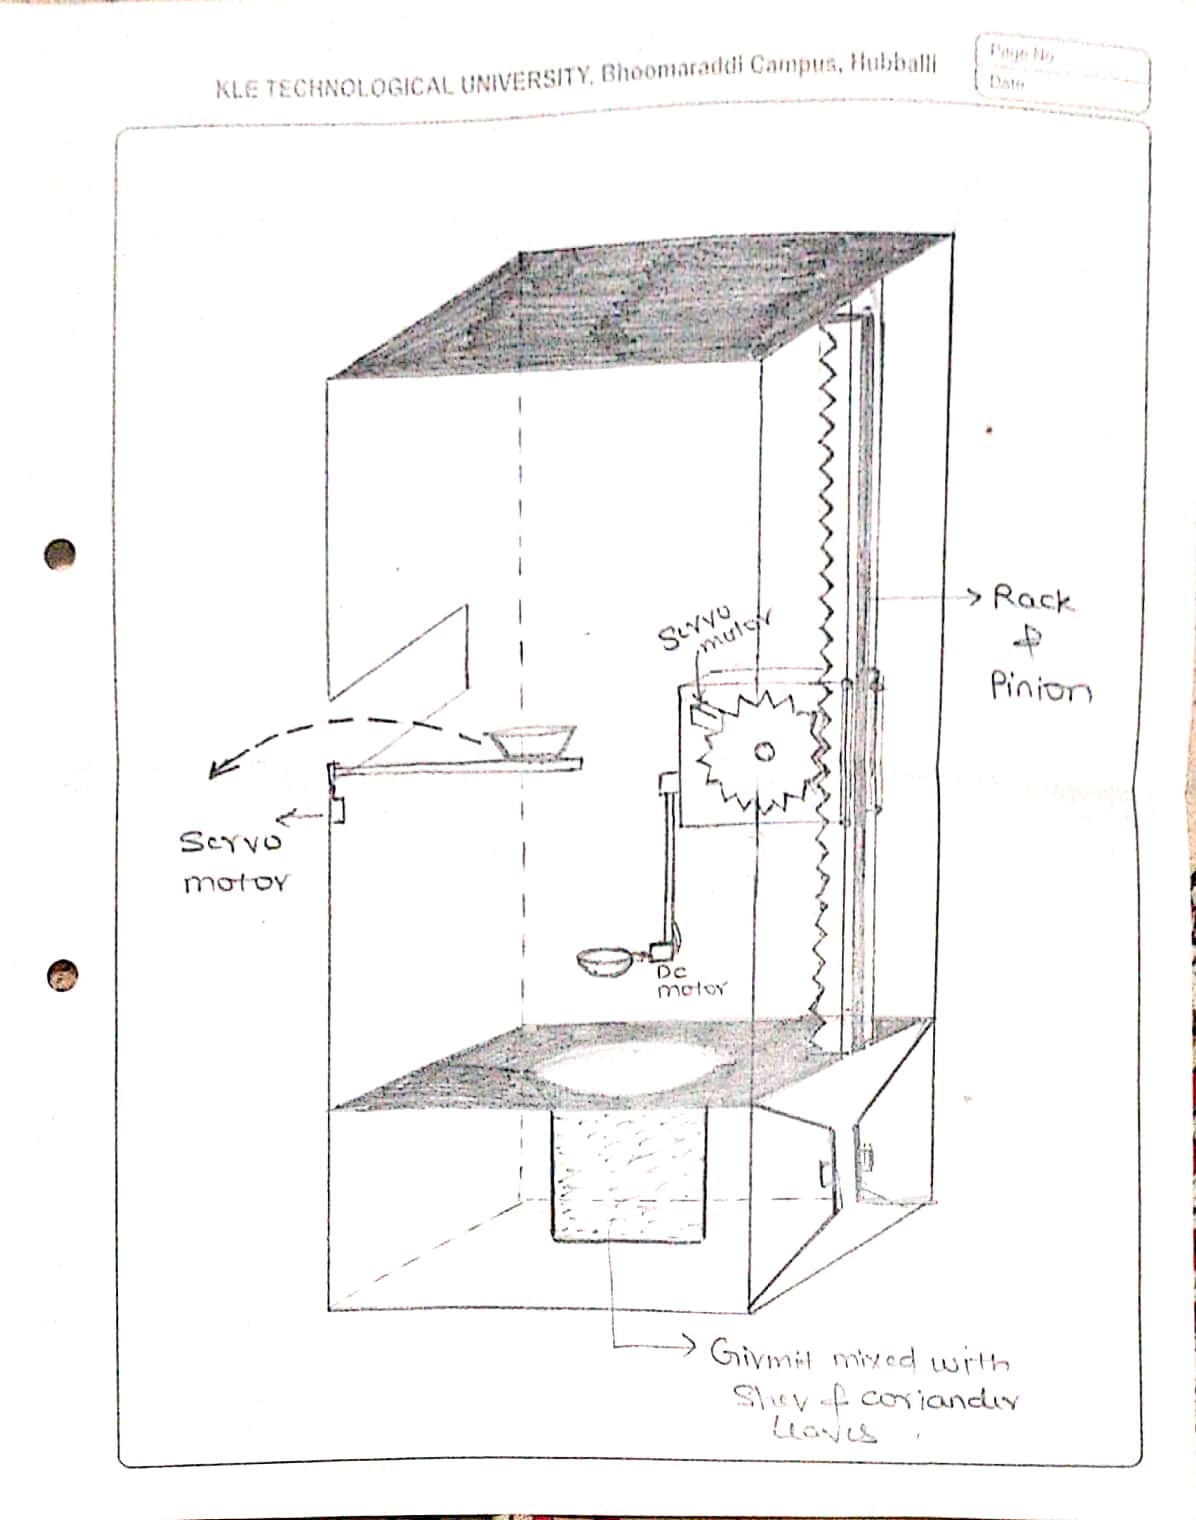 KLE TECHNOLOGICAL UNIVERSITY, Bhoomaraddi Campus, Hubballi
Page No
Date
Servo
motor
Rack
&
Pinion
Servo
motor
Dc
motor
Girmit mixed with
Shev & coriander
leaves .